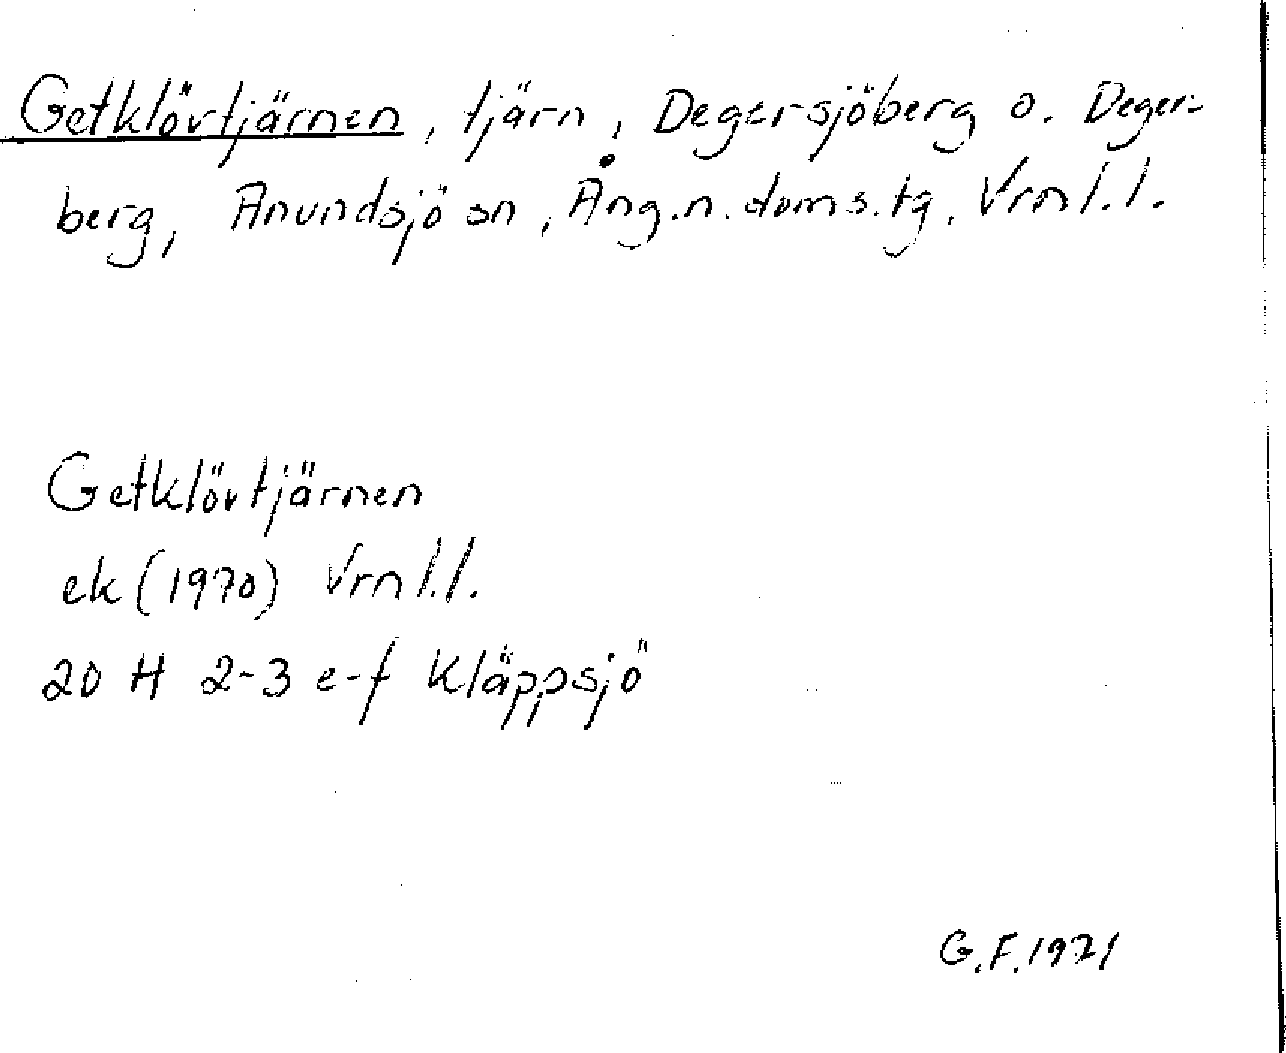 Getklövtjärnen, tjärn, Degersjöberg o. Deger-
berg, Anundsjö sn, Ång.n.doms.tg, Vrnl.l.
Getklövtjärnen
ek (1970) Vrnl.l.
20 H 2-3 e-f Kläppsjö
G.F.1971